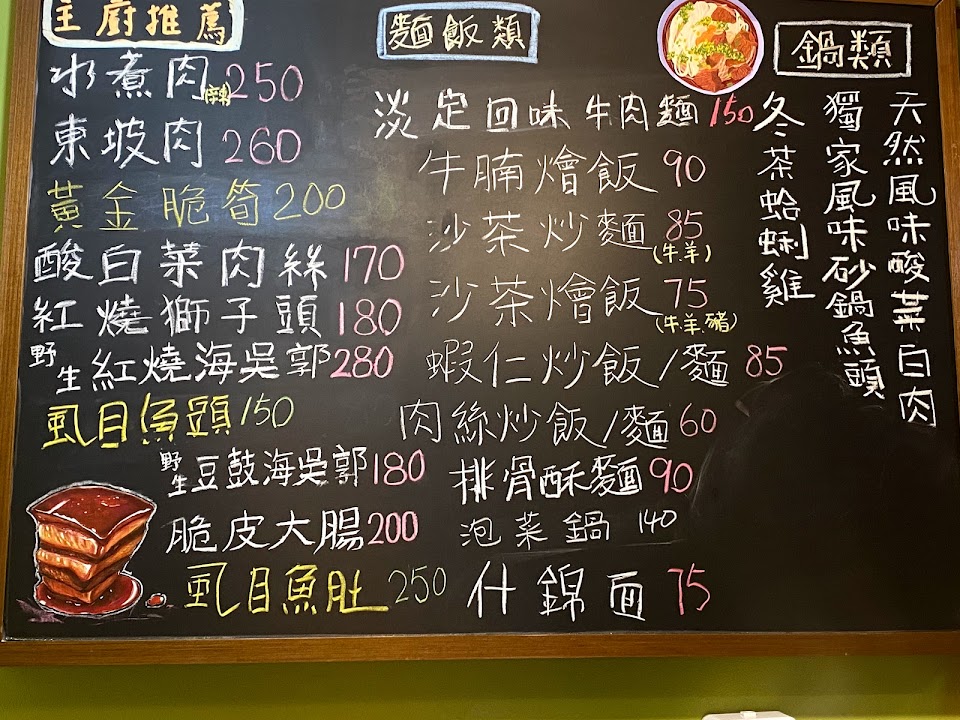 主廚推薦
水煮肉(麻辣)250
東坡肉 260
黃金脆筍200
酸白菜肉絲170
紅燒獅子頭180
野生紅燒海吳郭280
虱目魚頭150
野生豆鼓海吳郭180
脆皮大腸200
虱目魚肚250
麵飯類
淡定回味牛肉麵150
牛腩燴飯90
沙茶炒麵85
(牛.羊)
沙茶燴飯75
(牛.羊.豬)
蝦仁炒飯/麵 85
肉絲炒飯/麵60
排骨酥麵90
泡菜鍋 140
什錦面75
鍋類
天然風味酸菜白肉
獨家風味砂鍋魚頭
冬茶蛤蜊雞